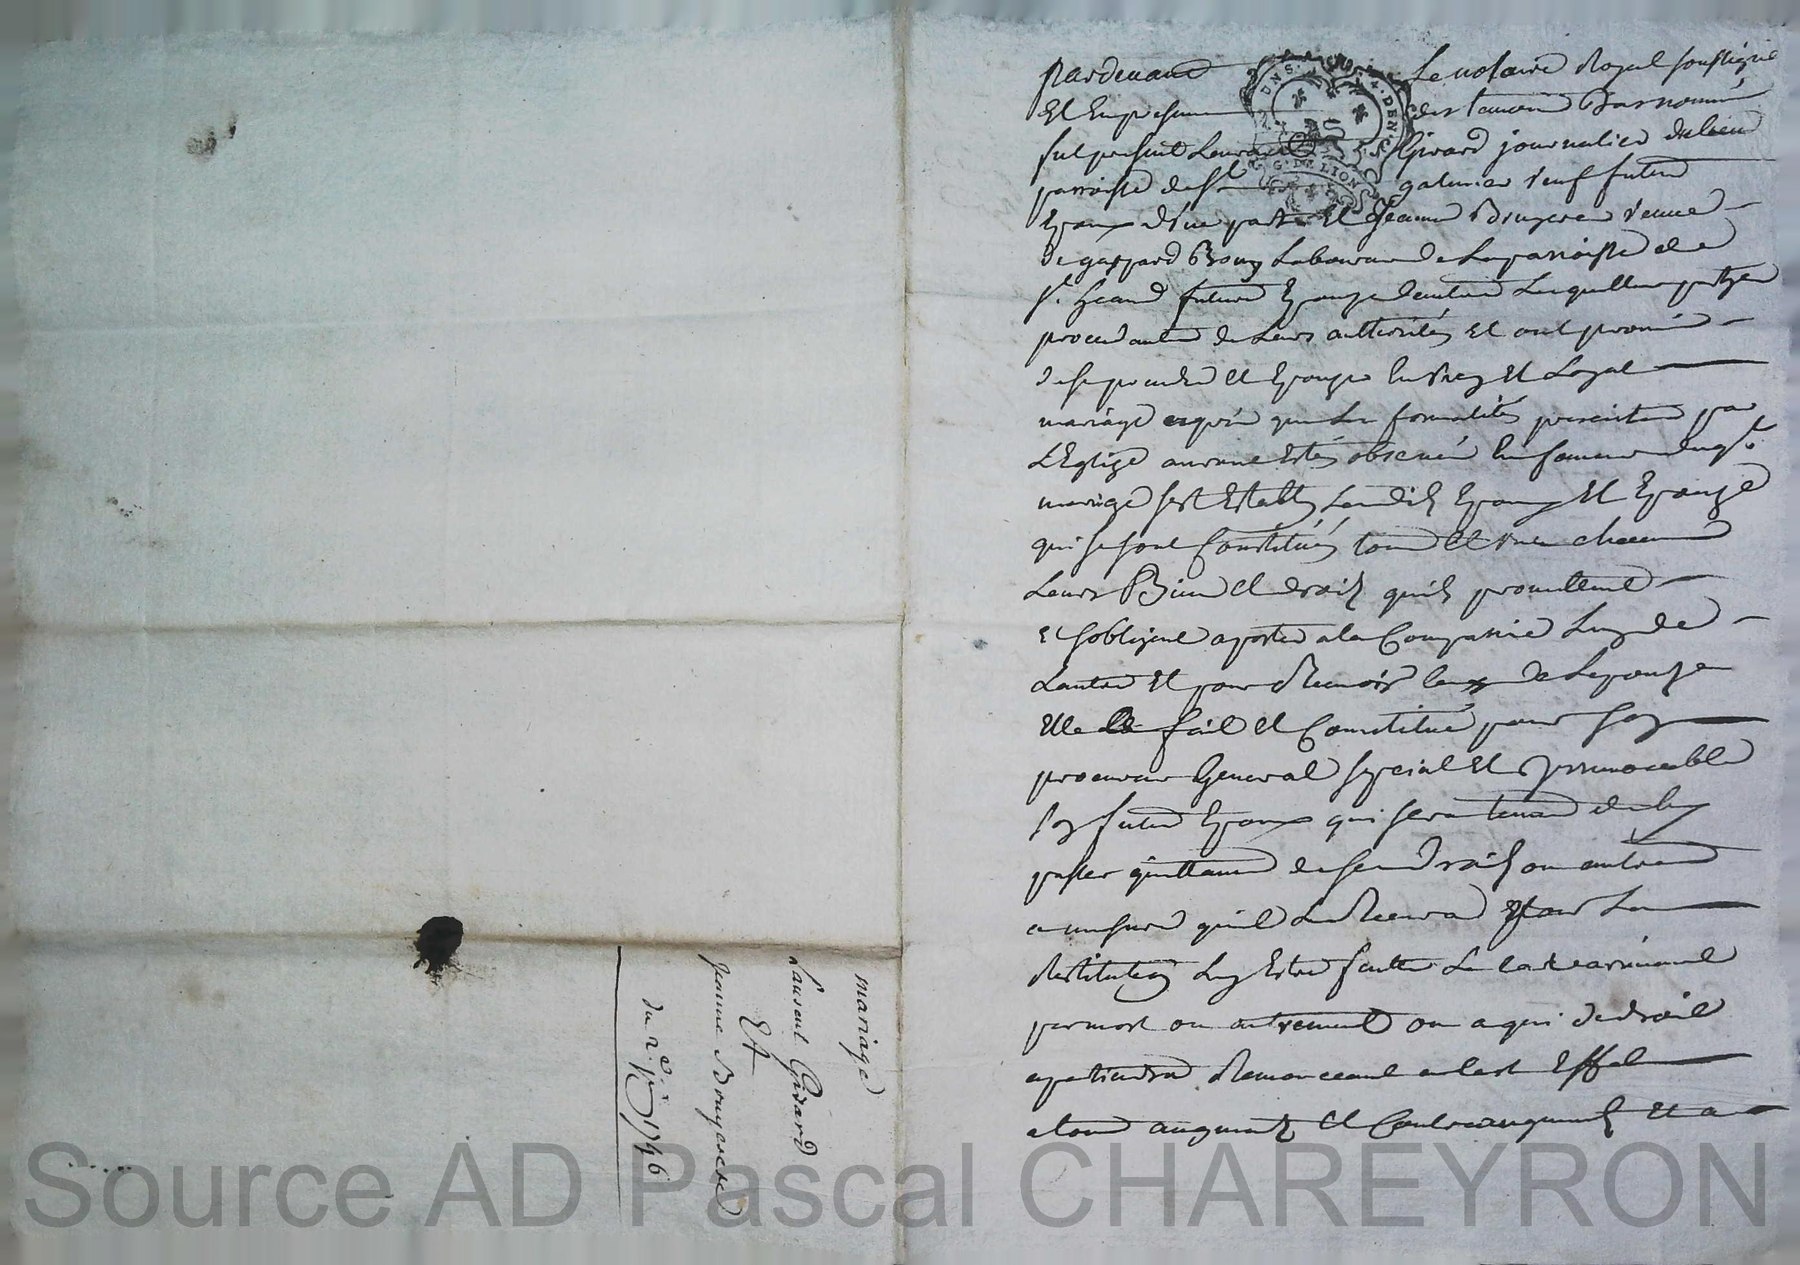 pardevant Le notaire Royal soussigné
Et En presence des temoins Bas nommés
fut present Laurent Girard journalier du lieu
parroisse de St galmier veuf futur
Epoux d'une part Et Jeanne Brugere veuve
de gaspard Laboureur de La parroisse de
St. futur Epouze d'autre Lesquelles parties
procedantes de Leurs authorités Et ont promis
de se prendre Et Epouzer En vray Et Loyal
mariage aprés que Les formalités prescites par
L'Eglize auront Estés observés En faveur duquel
mariage sest Establÿ Lesdits Epoux Et Epouze
qui se sont Constitués tous Et uns chacuns
Leurs Biens Et droits quils promettent
Et sobligent aporter a la Compagnie Lun de
Lautre Et pour Recevoir ceux de Lepouze
Elle fait Et Constitue pour son
procureur General special Et Irrevocable
son futur Epoux qui sera tenu de luy
passer quittance de ses droits ou autres
a mesure quil Les Recevra pour La
Restitution Luy Estre faitte Le cas arrivant
par mort ou autrement ou a qui de droit
apartiendra Renonceant a cest Effet
a tous augments Et Et a
mariage
Laurent Girard
Et
Jeanne Brugere
du 2e. 1746
Source AD Pascal CHAREYRON